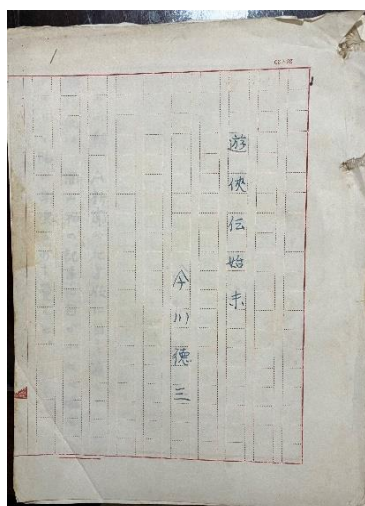 遊侠伝始末
今川徳三